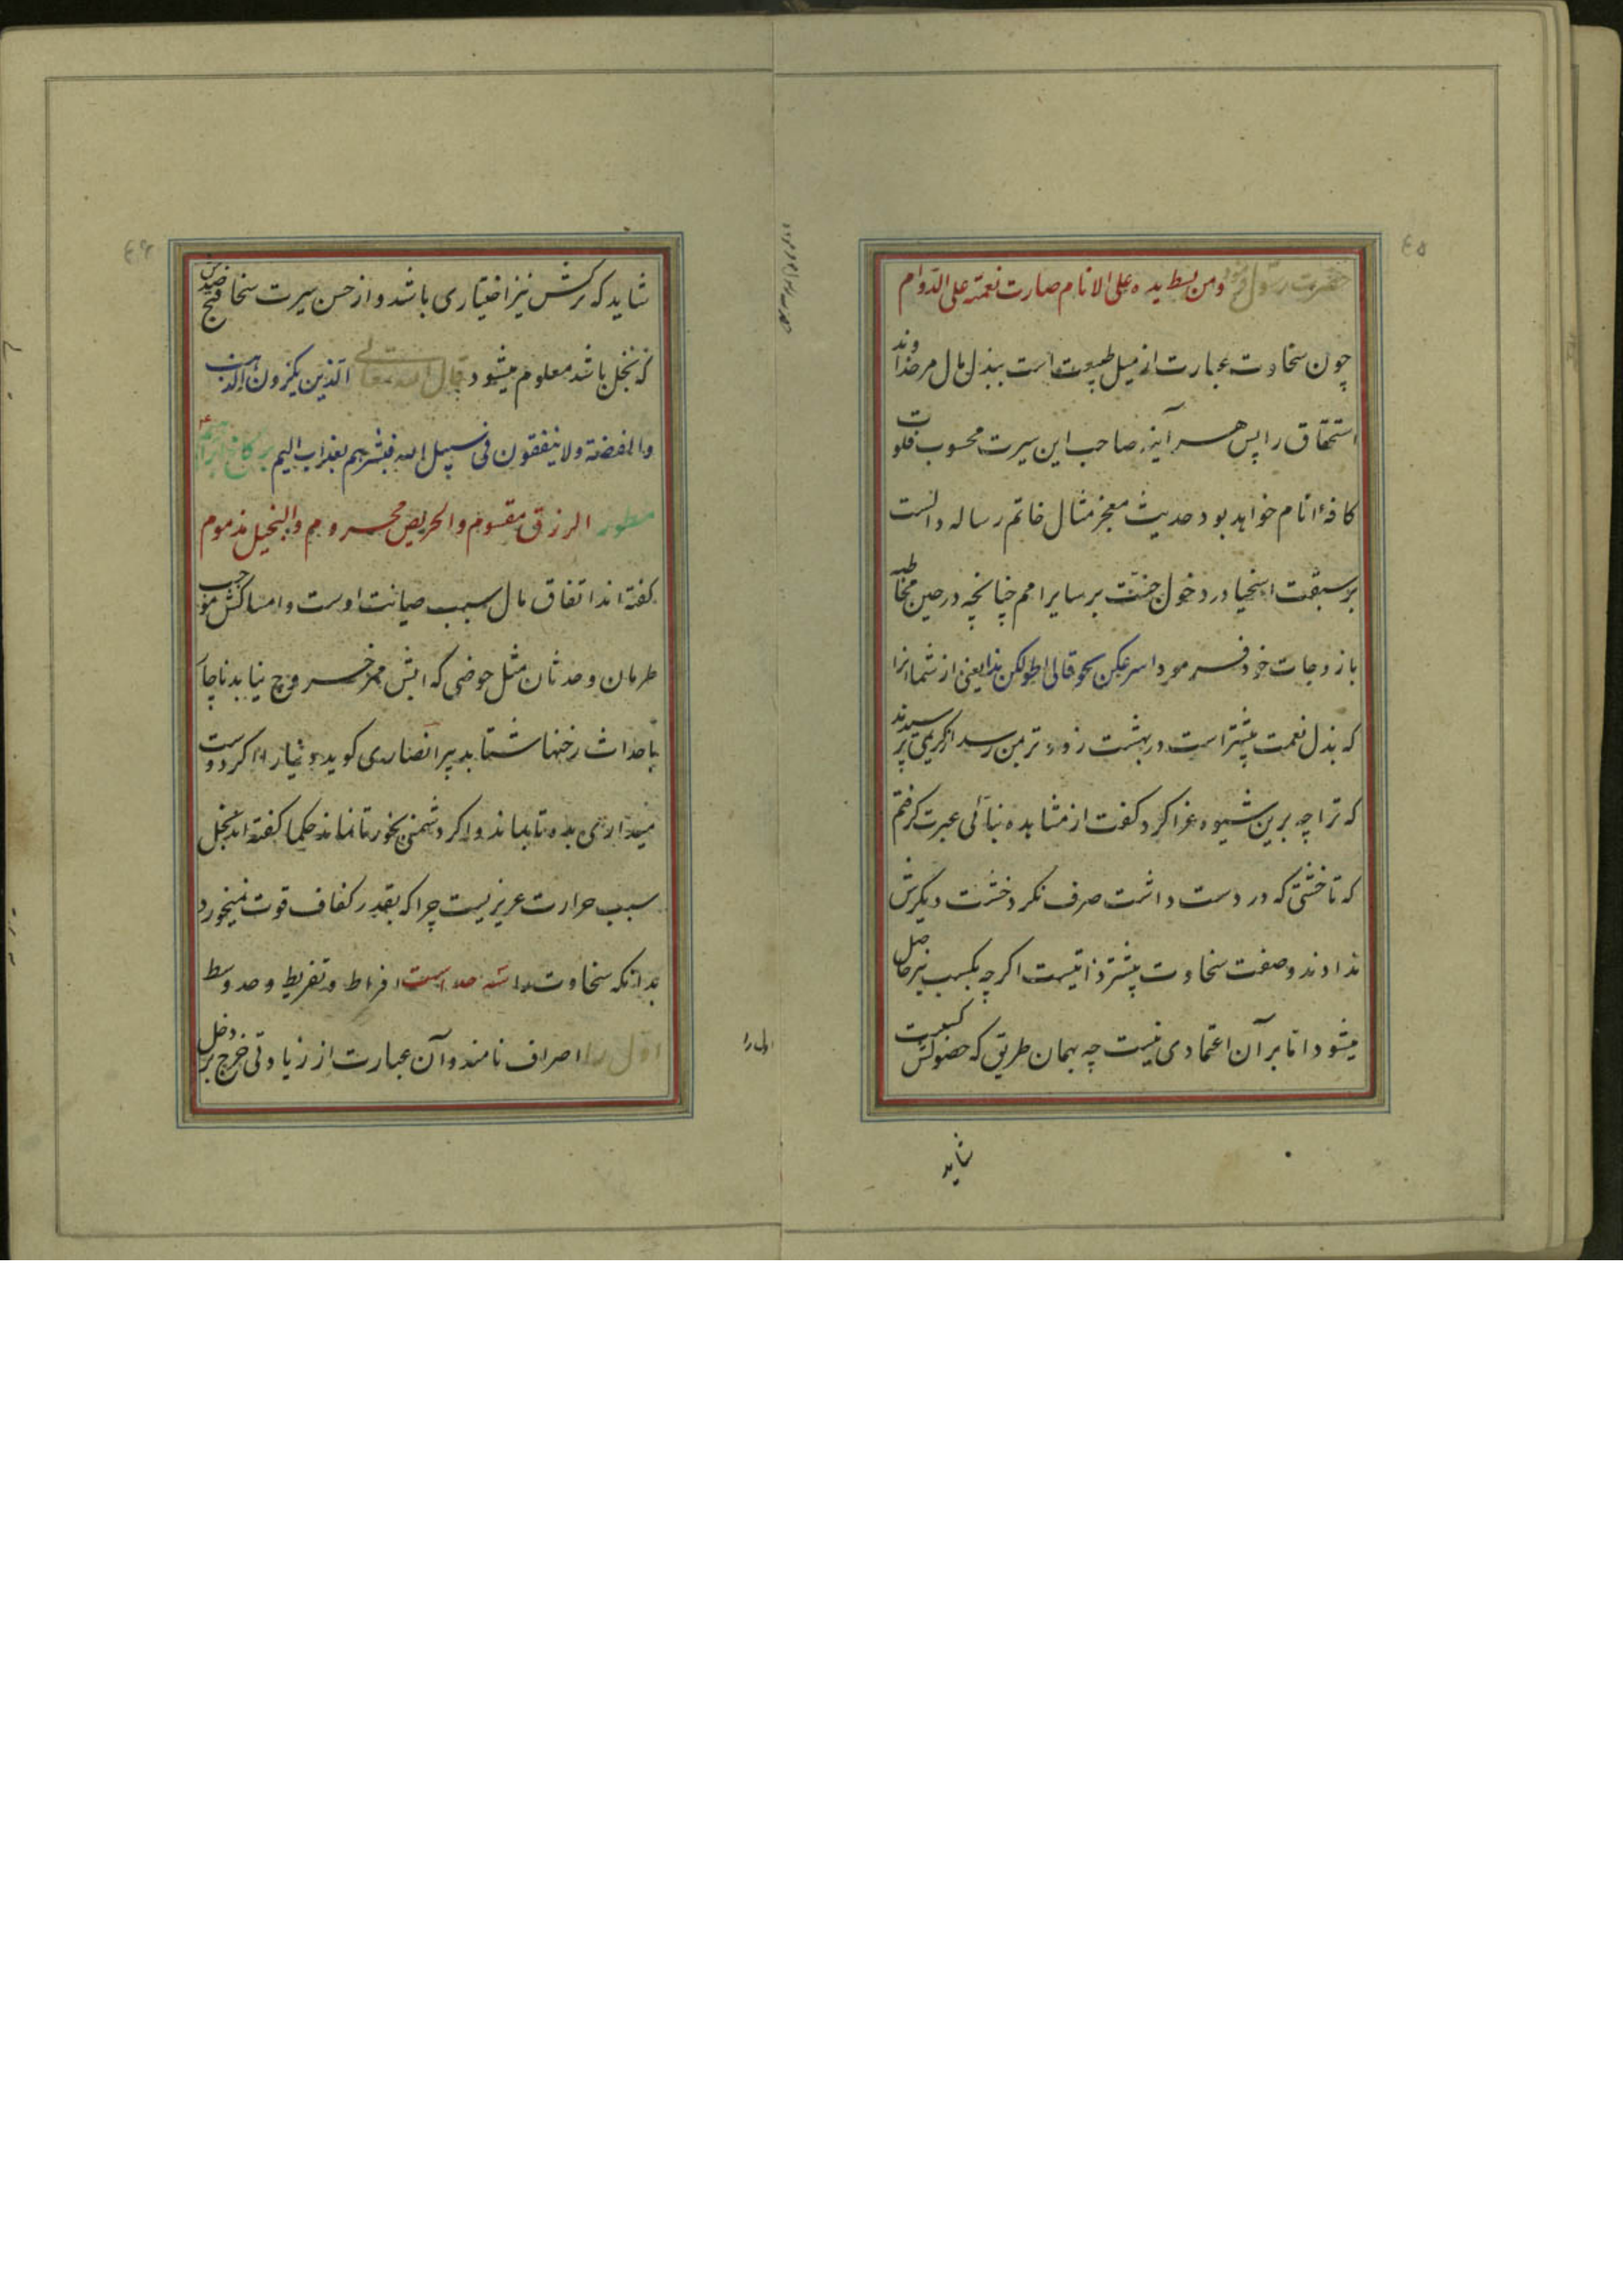 ٤٥
حضرت رسول فرمود ومن بسط یده علی الانام صارت نعمته علی الدوام
چون سخاوت عبارت از میل طبیعت است ببذل مال مر خداوند
استحقاق را پس هر آینه صاحب این سیرت محسوب قلوب
کافهٔ انام خواهد بود حدیث معجز مثال خاتم رساله دالست
بر سبقت اسخیا در دخول جنّت بر سایر امم چنانچه در حین مخاطبه
بازوجات خود فرمود اسرعکن لحوقا لی اطولکن یدا یعنی از شما انرا
که بذل نعمت بیشتر است در بهشت زودتر بمن رسد از کریمی پرسیدند
که ترا چه برین شیوه غرا کرد کفت از مشاهده بنائی عبرت کرفتم
که تا خشتی که در دست داشت صرف نکرد خشت دیکرش
ندادند و صفت سخاوت بیشتر ذاتیست اکر چه بکسب نیز حاصل
میشود اما بر آن اعتمادی نیست چه بهمان طریق که حضولش کسبیست
شاید
٤٦
شاید که ترکش نیز اختیاری باشد و از حسن سیرت سخا قبح ضدش
که بخل باشد معلوم میشود قال الله تعالی الذین یکنزون الذهب
والفضة ولا ینفقون فی سبیل الله فبشرهم بعذاب الیم بر کاخ
مسطور الرزق مقسوم والحریص محروم والبخیل مذموم
کفته اند اتفاق مال سبب صیانت اوست و امساکش موجب
طرمان و حدثان مثل حوضی که ابش ممر خروج نیابد ناچار
باحداث رخنها شتابد پیر انصاری کوید دنیا را اکر دوست
میداری بده تا بماند و اکر دشمنی بخور تا نماند حکما کفته اند بخل
سبب حرارت عریزیست چرا که بقدر کفاف قوت نمیخورد
بدانکه سخاوت را سه حد است افراط و تفریط و حد وسط
اول را اصراف نامند و آن عبارت از زیادتی خرج بر دخل
اول را